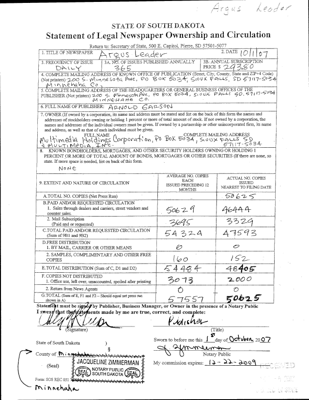 Argus Leader
STATE OF SOUTH DAKOTA
Statement of Legal Newspaper Ownership and Circulation
Return to: Secretary of State, 500 E. Capitol, Pierre, SD 57501-5077
1. TITLE OF NEWSPAPER Argus Leader 2. DATE 10/1/07
3. FREQUENCY OF ISSUE DAILY 3A. NO. OF ISSUES PUBLISHED ANNUALLY 365 3B. ANNUAL SUBSCRIPTION PRICE $
4. COMPLETE MAILING ADDRESS OF KNOWN OFFICE OF PUBLICATION (Street, City, County, State and ZIP+4 Code)
(Not printers) 200 S. Minnesota Ave, PO Box 5034, Sioux Falls, SD 57117-5034
Minnehaha Co.
5. COMPLETE MAILING ADDRESS OF THE HEADQUARTERS OF GENERAL BUSINESS OFFICES OF THE
PUBLISHER (Not printer) 200 S. Minnesota Ave, PO Box 5034, Sioux Falls SD 57117-5034
Minnehaha Co.
6. FULL NAME OF PUBLISHER: ARNOLD GARSON
7. OWNER (If owned by a corporation, its name and address must be stated and list on the back of this form the names and
addresses of stockholders owning or holding 1 percent or more of total amount of stock. If not owned by a corporation, the
names and addresses of the individual owners must be given. If owned by a partnership or other unincorporated firm, its name
and address, as well as that of each individual must be given.
FULL NAME COMPLETE MAILING ADDRESS
Multimedia Holdings Corporation, PO Box 5034, Sioux Falls SD
57117-5034
8. KNOWN BONDHOLDERS, MORTGAGEES, AND OTHER SECURITY HOLDERS OWNING OR HOLDING 1
PERCENT OR MORE OF TOTAL AMOUNT OF BONDS, MORTGAGES OR OTHER SECURITIES (If there are none, so
state. If more space is needed, list on back of this form.
NONE
9. EXTENT AND NATURE OF CIRCULATION AVERAGE NO. COPIES EACH ISSUES PRECEDING 12 MONTHS ACTUAL NO. COPIES ISSUED NEAREST TO FILING DATE
A. TOTAL NO. COPIES (Net Press Run) 50625
B. PAID AND/OR REQUESTED CIRCULATION
1. Sales through dealers and carriers, street vendors and
counter sales. 50629 46444
2. Mail Subscription
(Paid and/or requested) 3695
C. TOTAL PAID AND/OR REQUESTED CIRCULATION
(Sum of 9B1 and 9B2) 54324 47593
D. FREE DISTRIBUTION
1. BY MAIL, CARRIER OR OTHER MEANS 0 0
2. SAMPLES, COMPLIMENTARY AND OTHER FREE
COPIES 160 152
E. TOTAL DISTRIBUTION (Sum of C, D1 and D2) 54484
F. COPIES NOT DISTRIBUTED
1. Office use, left over, unaccounted, spoiled after printing 3073 2000
2. Return from News Agents 0 0
G. TOTAL (Sum of E, F1 and F2 - Should equal net press run
shown in A) 57557 50625
Statement must be signed by Publisher, Business Manager, or Owner in the presence of a Notary Public
I swear that the statements made by me are true, correct, and complete:
Publisher
(Signature) (Title)
State of South Dakota ) Sworn to before me this 1st day of October, 2007
County of Minnehaha
Notary Public
(Seal) JACQUELINE ZIMMERMAN
NOTARY PUBLIC
SOUTH DAKOTA
SEAL
My commission expires: 12-22-2009
Minnehaha